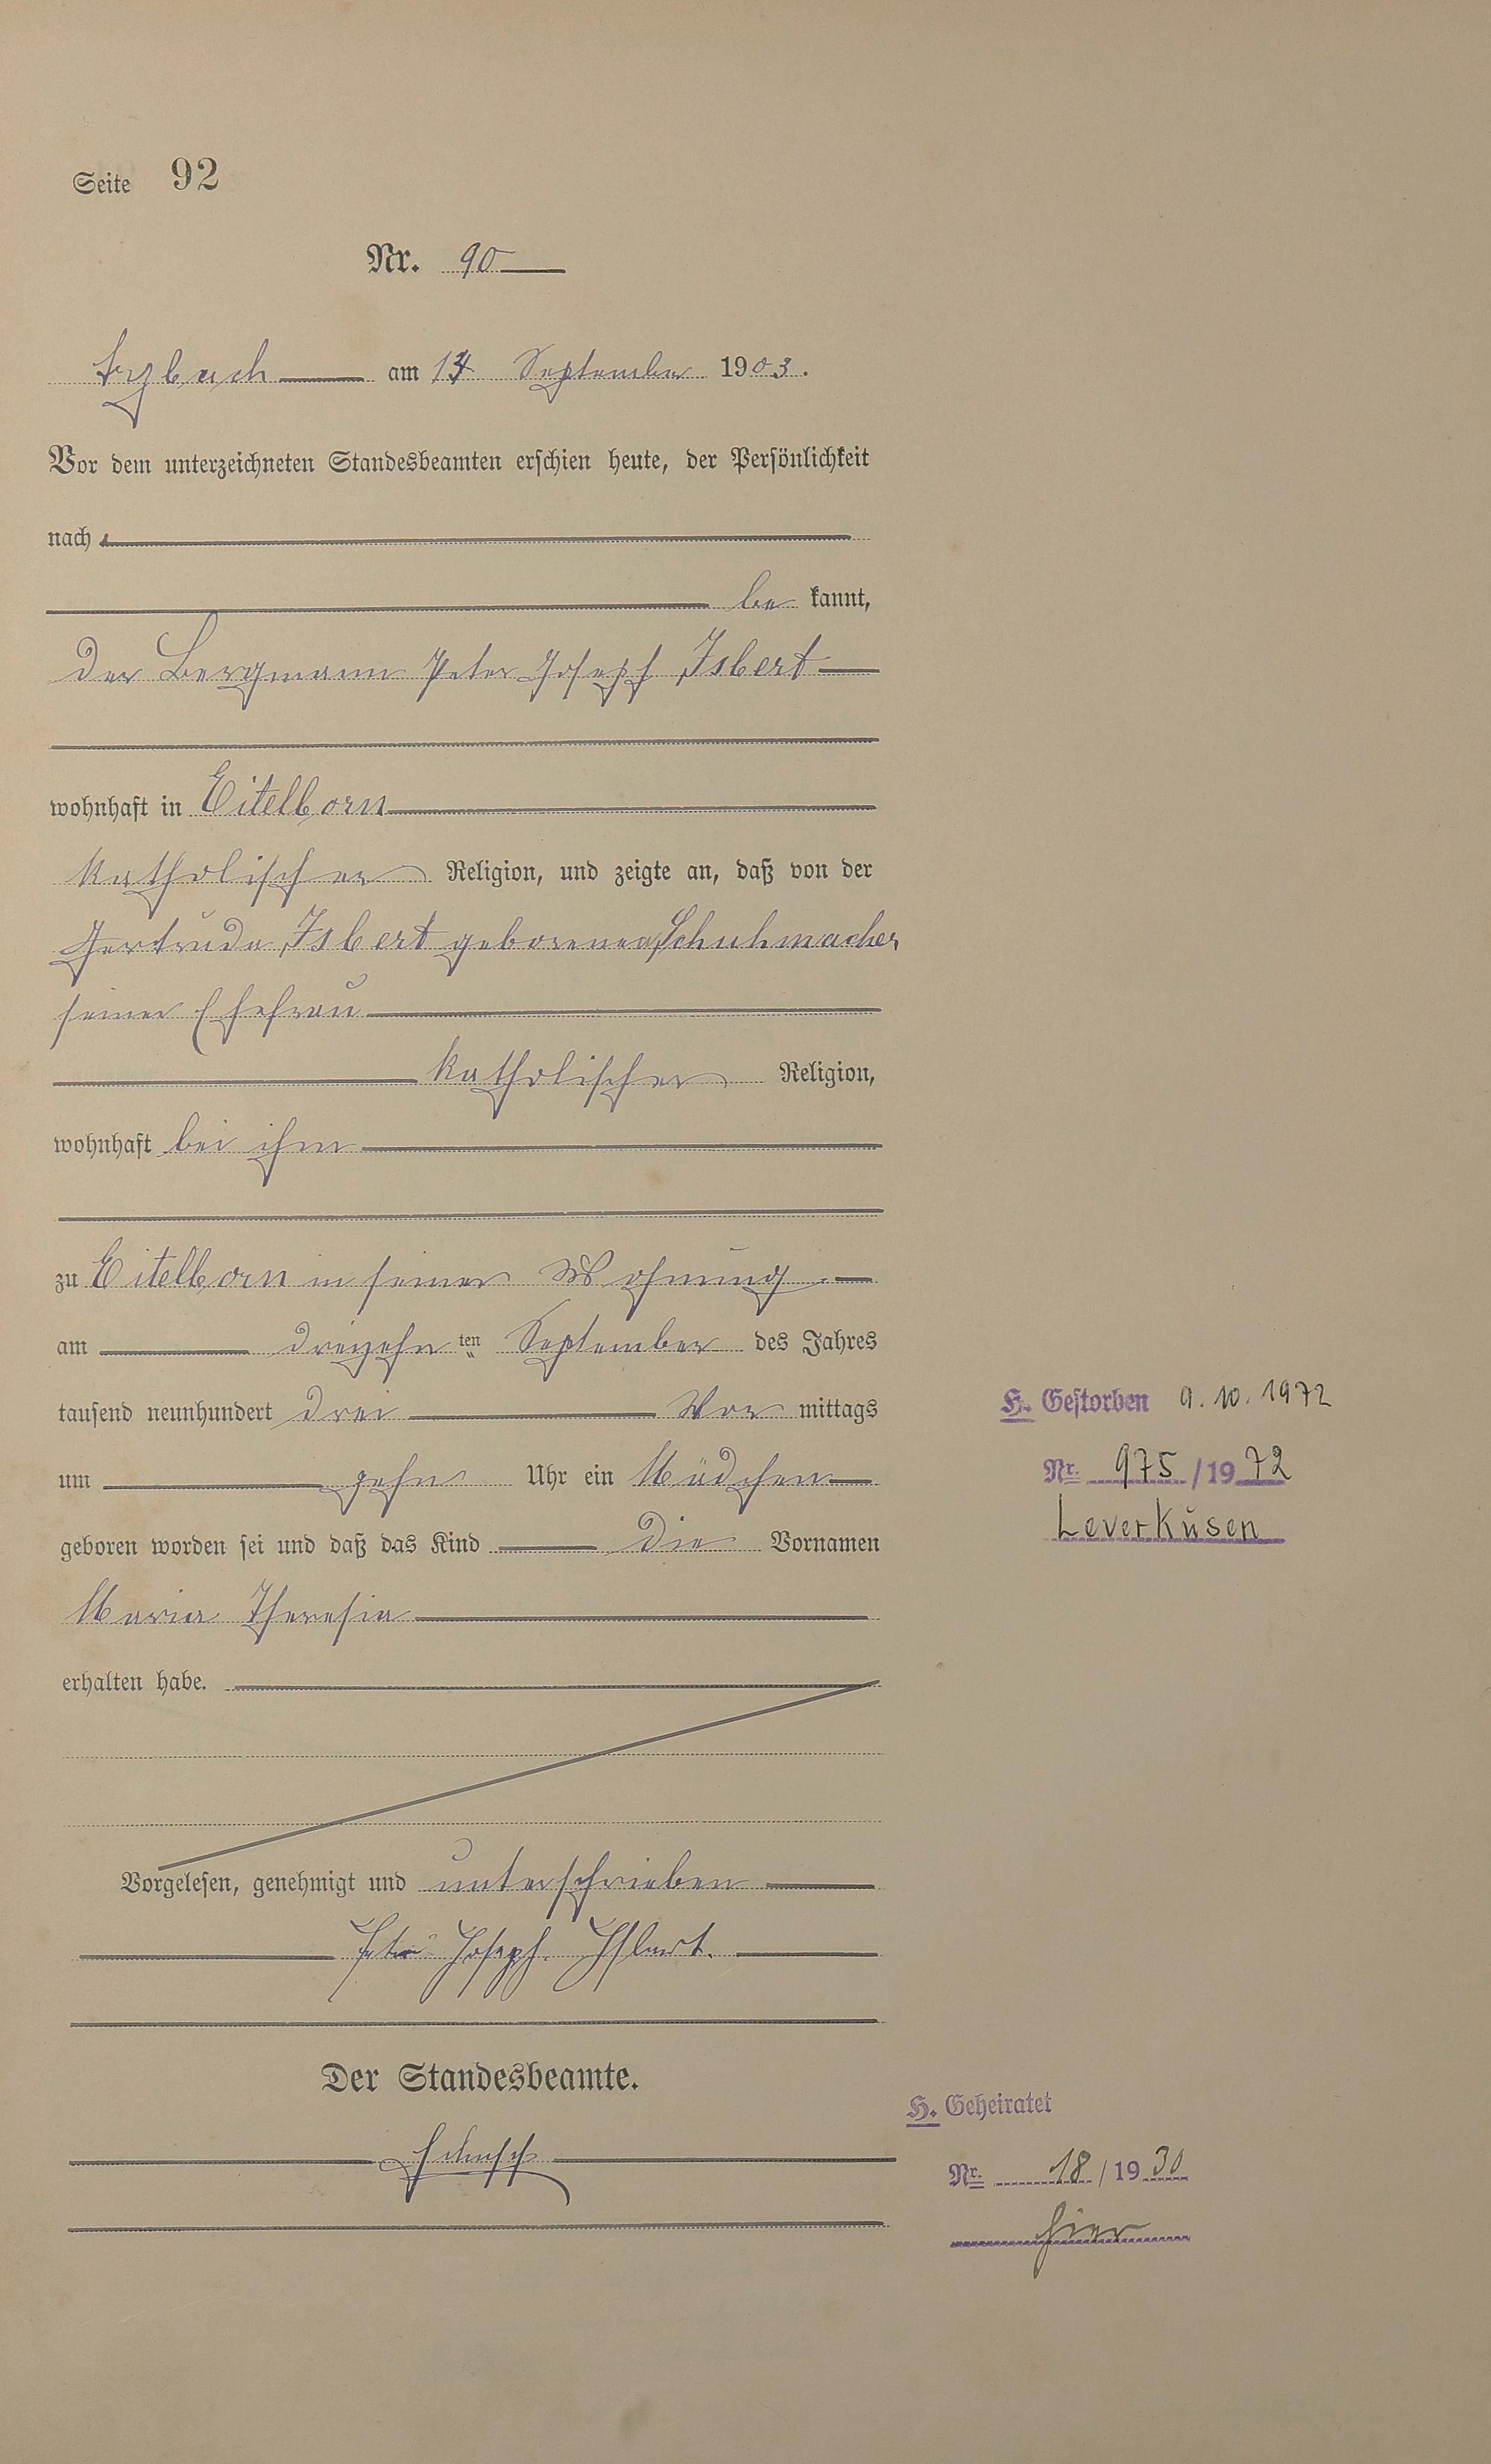 Seite 92
Nr. 90
Arzbach am 14 September 1903.
Vor dem unterzeichneten Standesbeamten erschien heute, der Persönlichkeit
nach
be kannt,
der Bergmann Peter Joseph Isbert
wohnhaft in Eitelborn
katholischer Religion, und zeigte an, daß von der
Gertrude Isbert geborenen Schuhmacher
seiner Ehefrau
katholischer Religion,
wohnhaft bei ihm
zu Eitelborn in seiner Wohnung
am dreizehn ten September des Jahres
tausend neunhundert drei Vor mittags
um zehn Uhr ein Mädchen
geboren worden sei und daß das Kind die Vornamen
Maria Theresia
erhalten habe.
Vorgelesen, genehmigt und unterschrieben
Peter Joseph Isbert.
Der Standesbeamte.
H. Gestorben 9.10.1972
Nr. 975/1972
Leverkusen
H. Geheiratet
Nr. 18/1930
hier